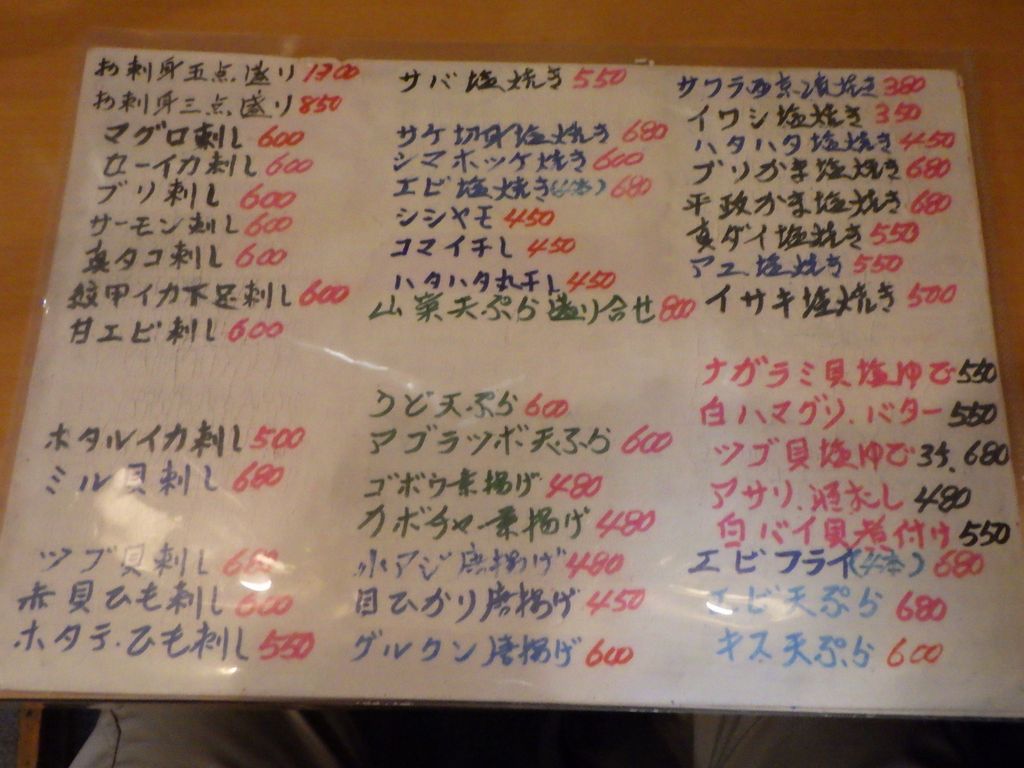 お刺身五点盛り 1300
お刺身三点盛り 850
マグロ刺し 600
セーイカ刺し 600
ブリ刺し 600
サーモン刺し 600
真タコ刺し 600
紋甲イカ下足刺し 600
甘エビ刺し 600
ホタルイカ刺し 500
ミル貝刺し 680
ツブ貝刺し 680
赤貝ひも刺し 600
ホタテ.ひも刺し 550
サバ塩焼き 550
サケ切身塩焼き 680
シマホッケ焼き 600
エビ塩焼き(4本) 680
シシャモ 450
コマイ干し 450
ハタハタ丸干し 450
山菜天ぷら盛り合せ 800
うど天ぷら 600
アブラツボ天ぷら 600
ゴボウ素揚げ 480
カボチャ素揚げ 480
小アジ唐揚げ 480
目ひかり唐揚げ 450
グルクン唐揚げ 600
サワラ西京漬焼き 380
イワシ塩焼き 350
ハタハタ塩焼き 450
ブリかま塩焼き 680
平政かま塩焼き 680
真ダイ塩焼き 550
アユ塩焼き 550
イサキ塩焼き 500
ナガラミ貝塩ゆで 550
白ハマグリ.バター 550
ツブ貝塩ゆで 680
アサリ.酒蒸し 480
白バイ貝煮付け 550
エビフライ(4本) 680
エビ天ぷら 680
キス天ぷら 600